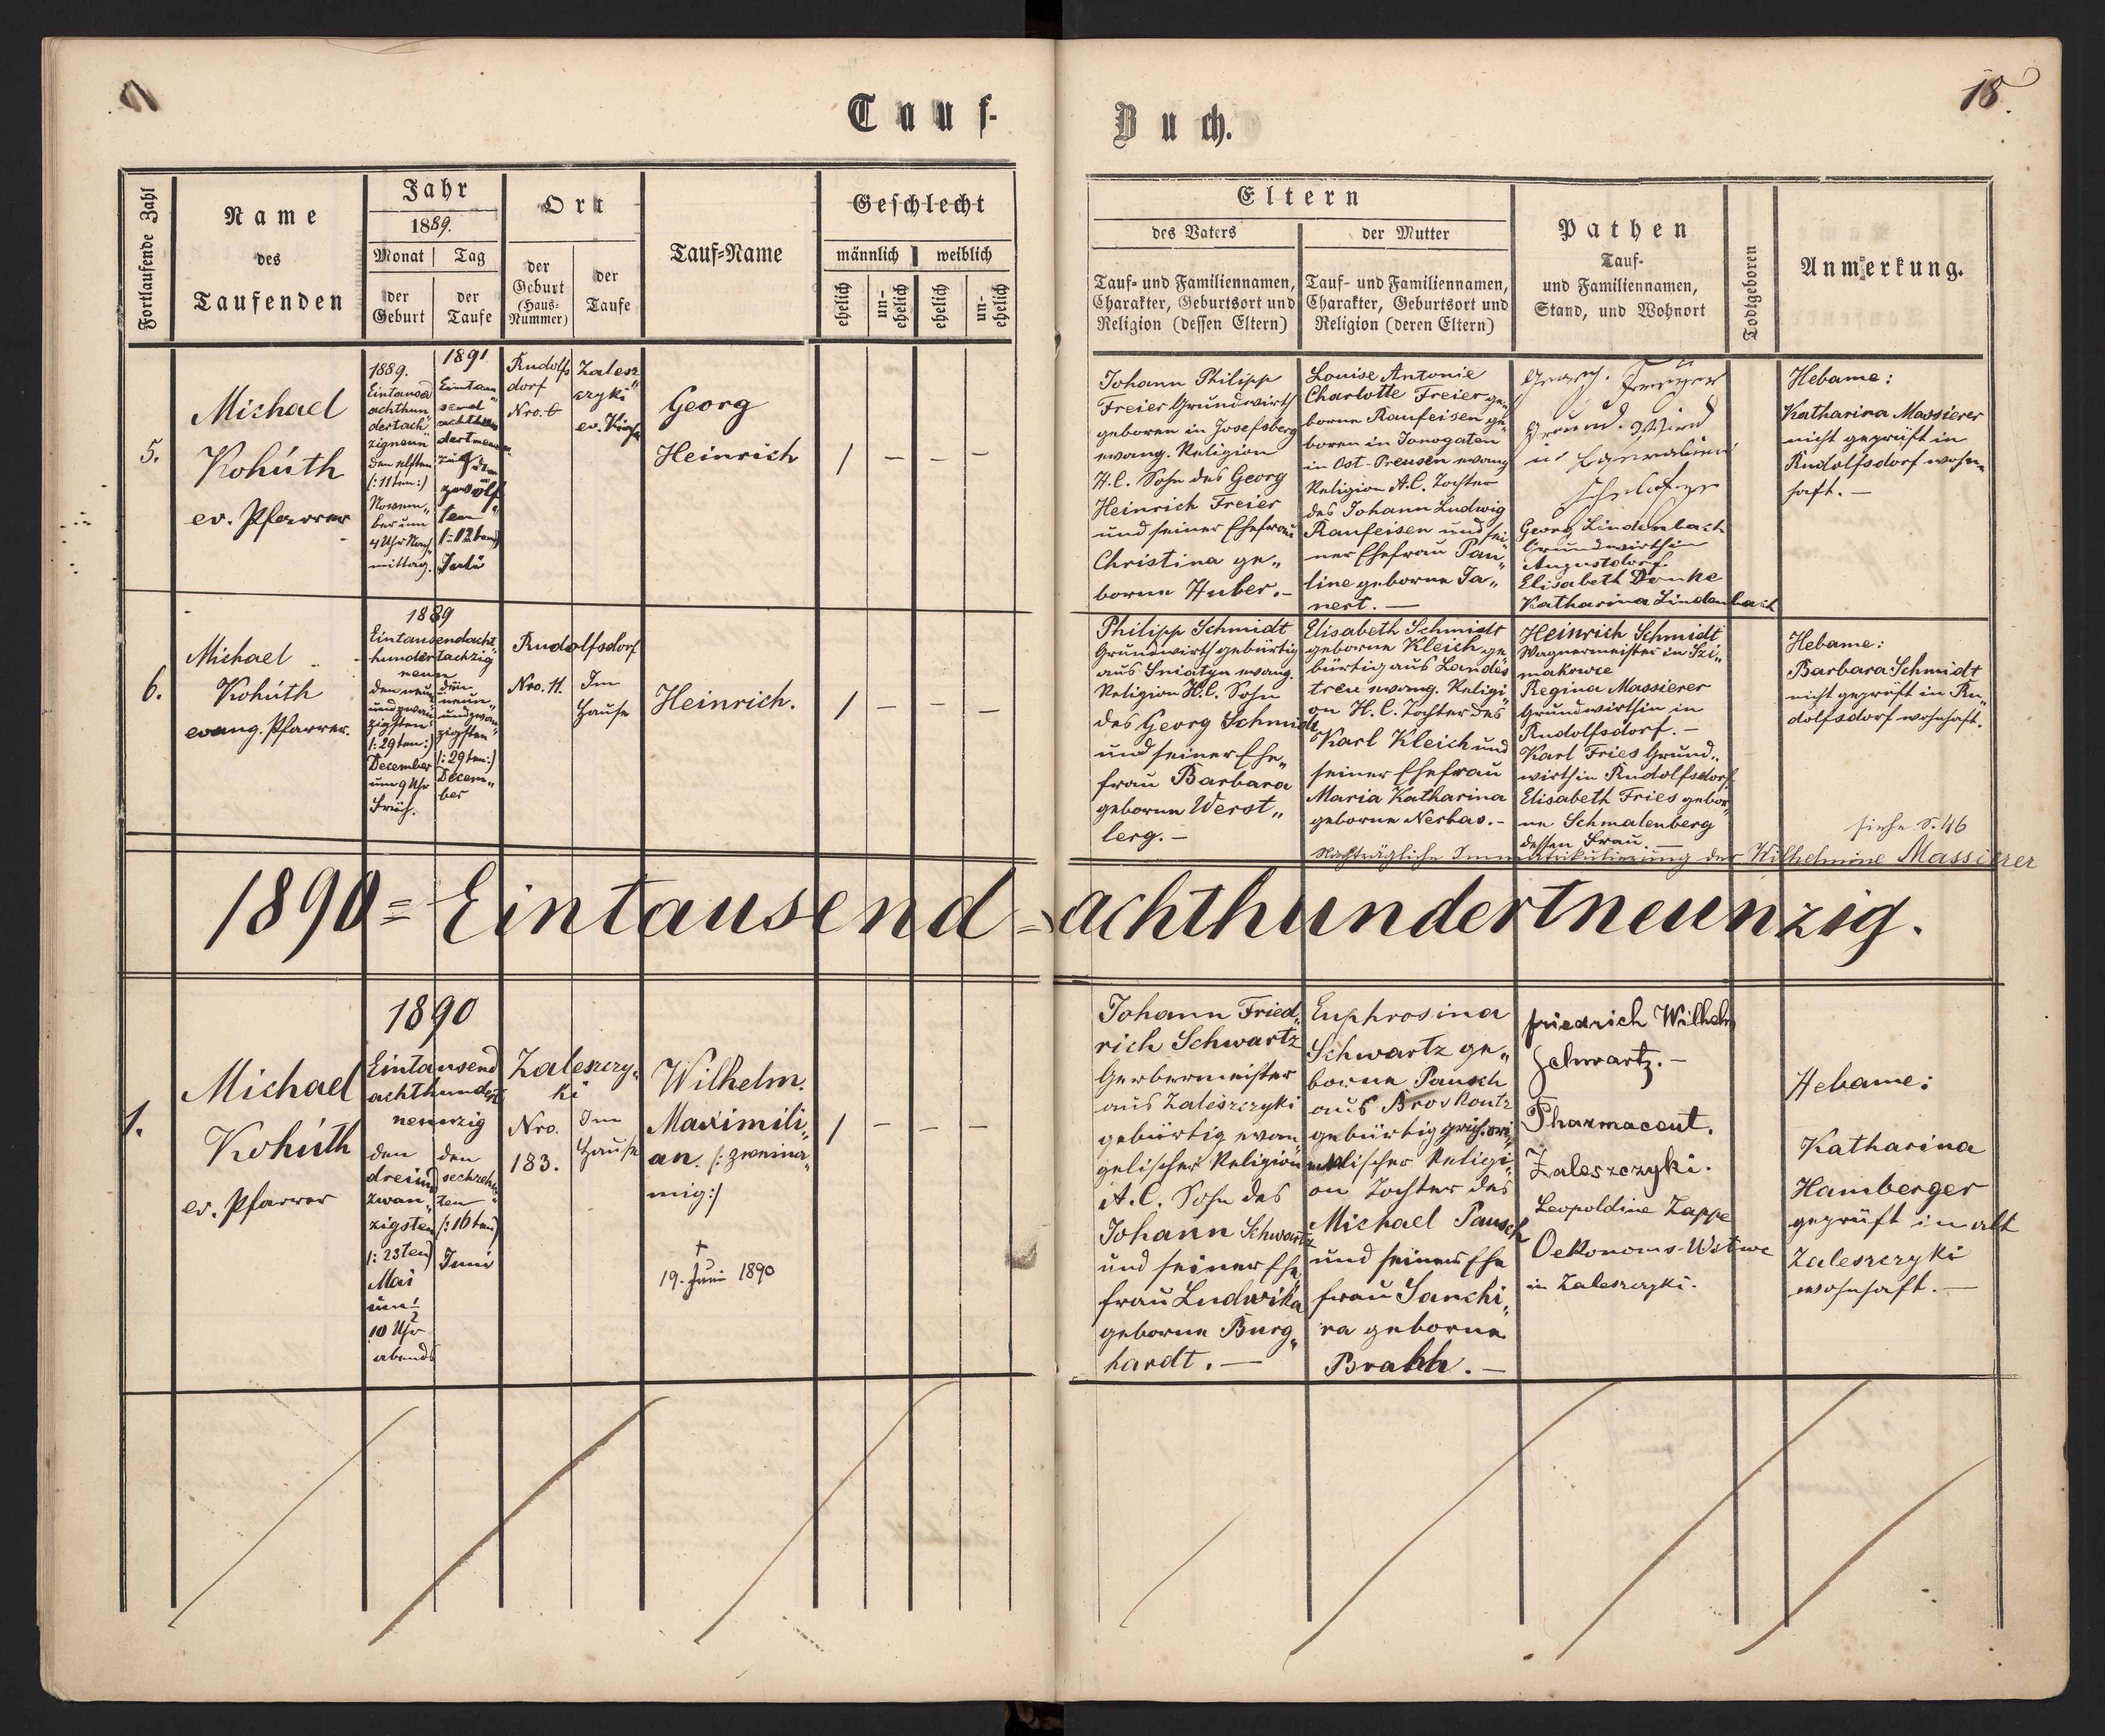 Tauf-
Buch.
18.
Fortlaufende Zahl
Name
des
Taufenden
Jahr
1889.
Monat
Tag
der
Geburt
der
Taufe
Ort
der
Geburt
(Haus-
Nummer)
der
Taufe
Tauf-Name
Geschlecht
männlich
weiblich
ehelich
un-
ehelich
ehelich
un-
ehelich
Eltern
des Vaters
der Mutter
Tauf- und Familiennamen,
Charakter, Geburtsort und
Religion (dessen Eltern)
Tauf- und Familiennamen,
Charakter, Geburtsort und
Religion (deren Eltern)
Pathen
Tauf-
und Familiennamen,
Stand, und Wohnort
Todtgeboren
Anmerkung.
5.
Michael
Kohúth
ev. Pfarrer
1889.
Eintausd
achthun
dertach
zigneun
den elften
(:11ten:)
Novem„
ber um
4 Uhr Nach
mittag.
1891
Eintau„
send
achthun
dertneun
zig
zwölf
ten
(:12ten:)
Juli
Rudolfs
dorf
Nro. 6
Zalesz
czyki
ev. Kirche
Georg
Heinrich
/ — — —
Johann Philipp
Freier Grundwirth
geboren in Josefsberg
evang. Religion
H.C. Sohn des Georg
Heinrich Freier
und seiner Ehefrau
Christina ge„
borne Huber.-
Louise Antonie
Charlotte Freier ge„
borne Raufeisen ge„
boren in Janogaten
in Ost-Preusen evang
Religion A.C. Tochter
des Johann Ludwig
Raufeisen und sei
ner Ehefrau Pau„
line geborne Ja„
nert. —
Georg Lindenbach
Grundwirth in
Augustdorf.
Elisabeth Donke
Katharina Lindenbach
Hebame:
Katharina Massierer
nicht geprüft in
Rudolfsdorf wohn„
haft. —
6.
Michael
Kohúth
evang. Pfarrer.
1889
Eintausendacht
hundertachzig
neun
den neun
undzwan
zigsten
(:29ten:)
December
um 9 Uhr
Früh.
den
neun„
undzwan
zigsten
(:29ten:)
Decem„
ber
Rudolfsdorf
Nro. 11.
Im
Hause
Heinrich.
/ — — —
Philipp Schmidt
Grundwirth gebürtig
aus Sniatyn evang.
Religion H.C. Sohn
des Georg Schmidt
und seiner Ehe„
frau Barbara
geborne Werst„
lerg. —
Elisabeth Schmidt
geborne Kleich ge
bürtig aus Landes
treu evang. Religi
on H.C. Tochter des
Karl Kleich und
seiner Ehefrau
Maria Katharina
geborne Nerbas.-
Heinrich Schmidt
Wagnermeister in Szi„
makowce
Regina Massierer
Grundwirthin in
Rudolfsdorf. —
Karl Fries Grund„
wirth in Rudolfsdorf
Elisabeth Fries gebor
ne Schmalenberg
dessen Frau. —
Hebame:
Barbara Schmidt
nicht geprüft in Ru„
dolfsdorf wohnhaft.
siehe S. 46
Nachträgliche Immatrikulierung der Wilhelmine Massierer
1890 = Eintausend = achthundertneunzig.
1.
Michael
Kohúth
ev. Pfarrer
1890
Eintausend
achthundert
neunzig
den
dreiund
zwan„
zigsten
(:23ten)
Mai
um
10 Uhr
abends
den
sechzehn„
ten
(:16ten)
Juni
Zaleszczy„
ki
Nro.
183.
Im
Hause
Wilhelm.
Maximili„
an. (:zweina„
mig:)
†
19. Juni 1890
/ — — —
Johann Fried„
rich Schwartz
Gerbermeister
aus Zaleszczyki
gebürtig evan„
gelischer Religion
A.C. Sohn des
Johann Schwartz
und seiner Ehe
frau Ludwika
geborne Burg„
hardt. —
Euphrosina
Schwartz ge„
borne Pausch
aus
gebürtig
Religi„
on Tochter des
Michael Pausch
und seiner Ehe
frau Janchi„
ra geborne
Friedrich Wilhelm
Schwartz. —
Pharmaceut.
Zaleszczyki.
Leopoldine Zappe
Oekonoms-Wstwe
in Zaleszczyki.
Hebame:
Katharina
Hamberger
geprüft in alt
Zaleszczyki
wohnhaft. —